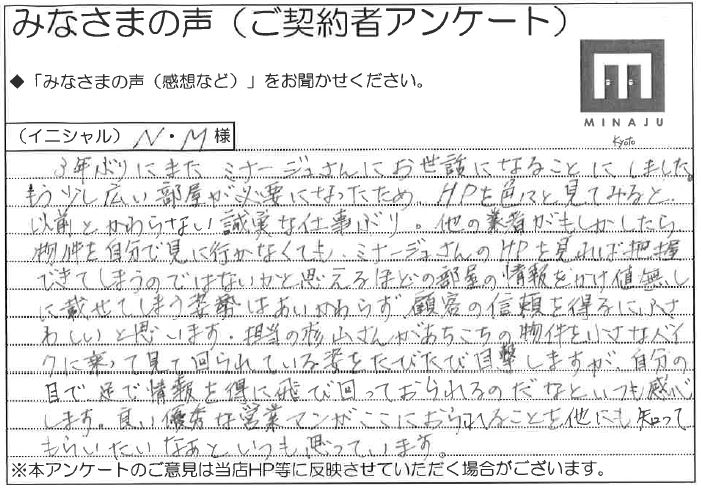 みなさまの声（ご契約者アンケート）
◆「みなさまの声（感想など）」をお聞かせください。
MINAJU
Kyoto
（イニシャル） N・M 様
3年ぶりにまた ミナージュさんにお世話になることにしました。
もう少し広い部屋が必要になったため HPを色々と見てみると、
以前とかわらない誠実な仕事ぶり。他の業者がもしかしたら
物件を自分で見に行かなくても、ミナージュさんのHPを見れば把握
できてしまうのではないかと思えるほどの部屋の情報をかけ値無し
に載せてしまう姿勢はあいかわらず顧客の信頼を得るにふさ
わしいと思います。担当の杉山さんがあちこちの物件を小さなバイ
クに乗って見て回られている姿をたびたび目撃しますが、自分の
目で、足で情報を得に飛び回っておられるのだなといつも感心
します。良い優秀な営業マンがここにおられることを他にも知って
もらいたいなあといつも思っています。
※本アンケートのご意見は当店HP等に反映させていただく場合がございます。